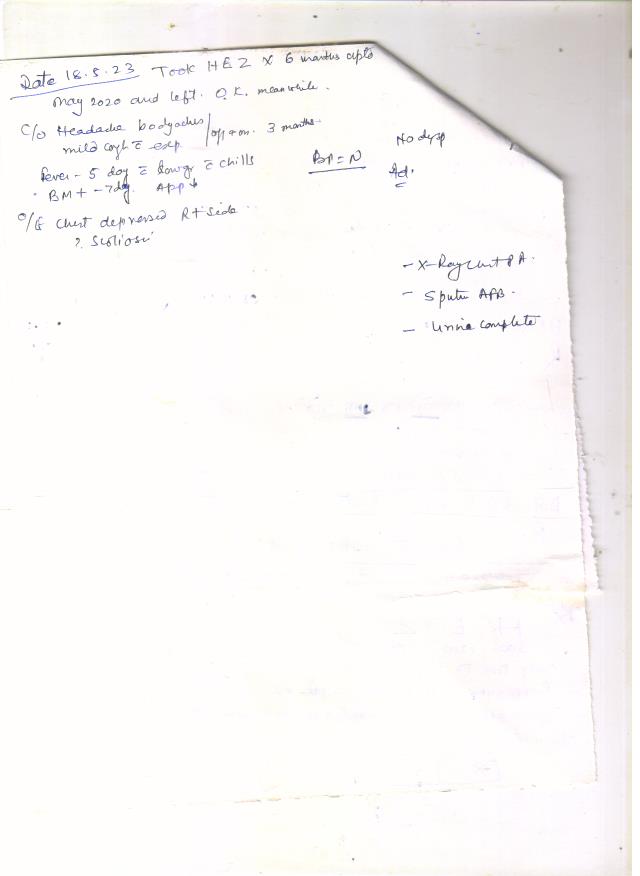 Date 18.5.23 Took HEZ x 6 months upto
May 2020 and left. O.K. meanwhile.
C/o Headache bodyaches / off & on. 3 months
mild cough c̄ exp.
No dysp
fever - 5 day c̄ low gr c̄ chills
BP = N
Ad.
BM + - 7 day. App ↓
O/E Chest depressed Rt side
? Scoliosis
- X-Ray chest PA.
- Sputm AFB.
- Urine complete